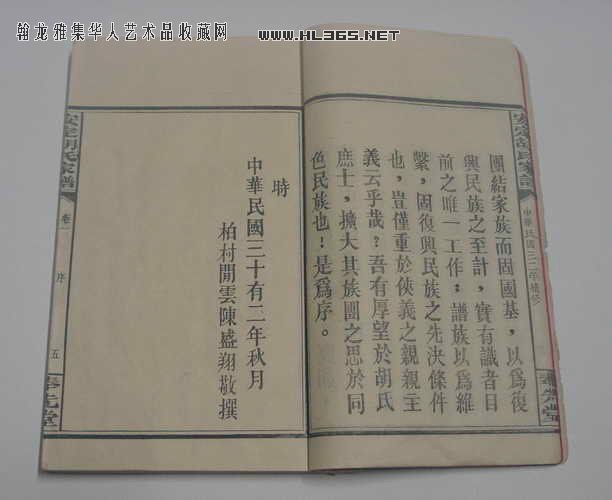 翰龙雅集华人艺术品收藏网
www.HL365.NET
安定胡氏家譜
團結家族而固國基，以爲復
興民族之至計，實有識者目
前之唯一工作；譜族以爲維
繫，固復興民族之先決條件
也，豈僅重於俠義之親親主
義云乎哉？吾有厚望於胡氏
庶士，擴大其族團之思於同
色民族也！是爲序。
時
中華民國三十有二年秋月
柏村閒雲陳盛翔敬撰
安定胡氏家譜
卷一
序
五
奉先堂
中華民國三二年續修
奉先堂